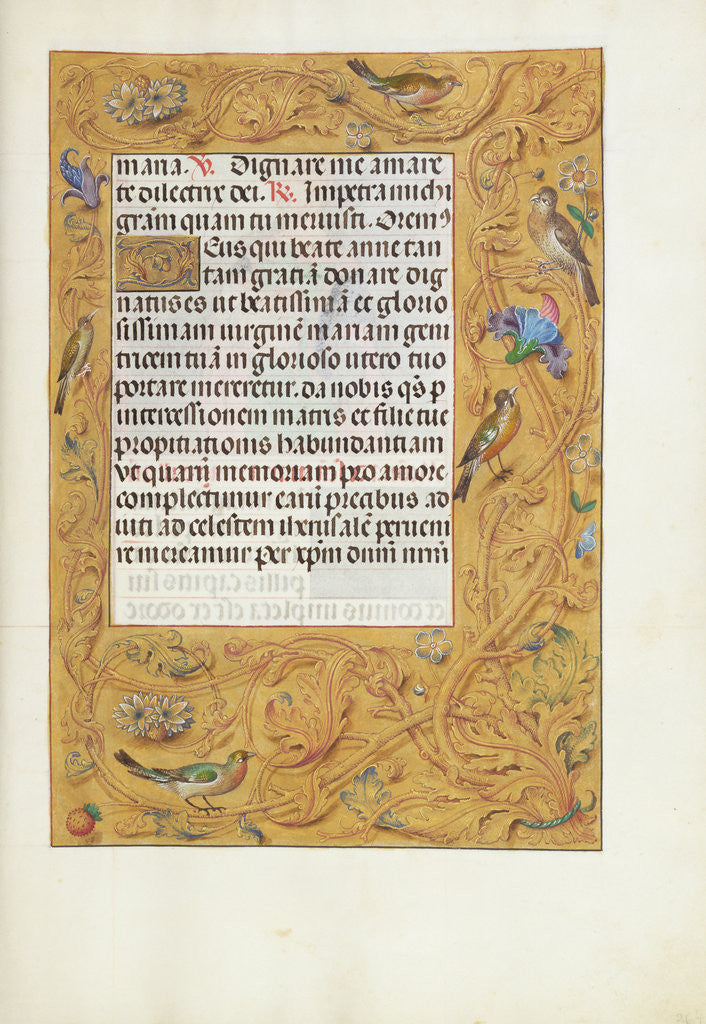 maria. V. Dignare me amare
te dilectrix dei. R. Impetra michi
grām quam tu meruisti. Orem⁹
Deus qui beate anne tan
tam gratiā donare dig
natus es ut beatissimā et glorio
sissimam uirginē mariam geni
tricem tuā in glorioso utero tuo
portare mereretur. da nobis q̄s p
intercessionem matris et filie tue
propitiationis habundantiam
vt quarū memoriam pro amore
complectimur earū precibus ad
iuti ad celestem iherusalē perueni
re mereamur per xp̄m dūm nr̄m